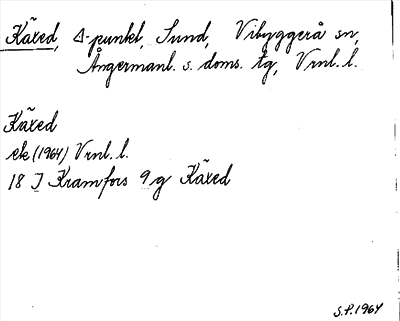 Käxed, Δ-punkt, Sund, Vibyggerå sn,
Ångermanl. s. doms. tg, Vrnl. l.
Käxed
ek (1964) Vrnl. l.
18 I Kramfors 9 g Käxed
S.F. 1964